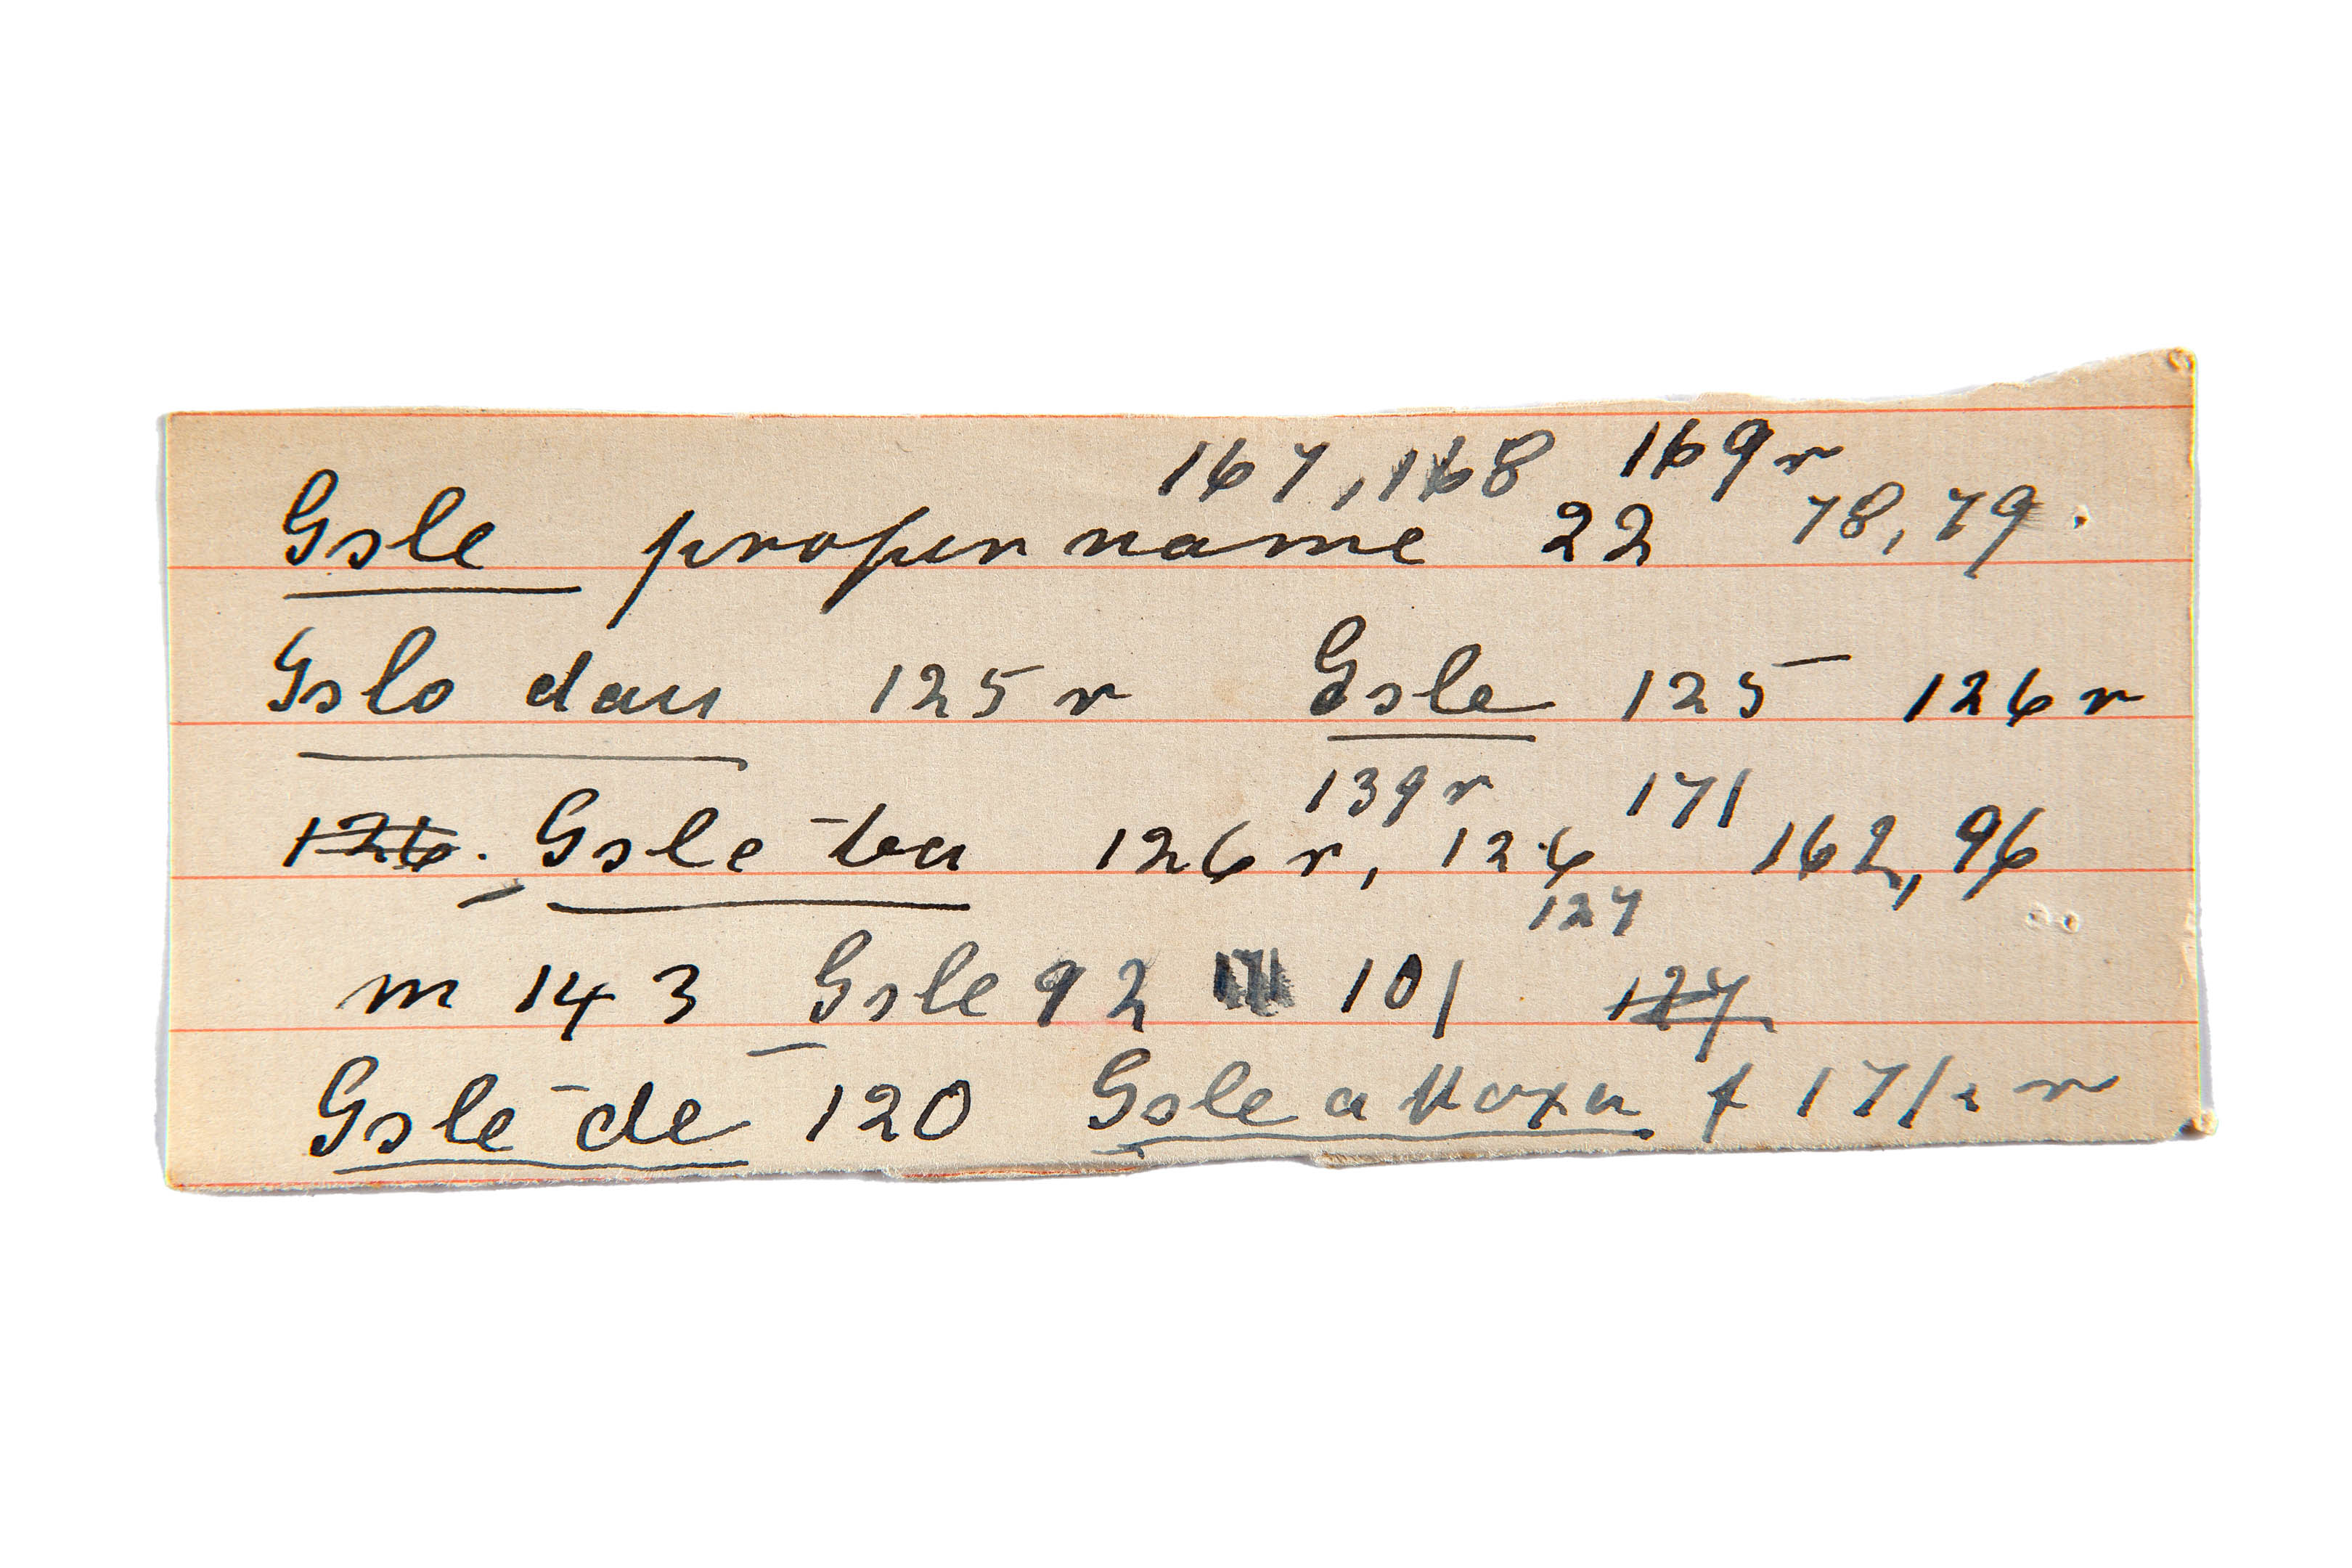 167, 168 169 r
Gsle proper name 22 78, 79.
Gslo dau 125 r Gsle 125 126 r
139 r 171
126. Gsle-ba 126 r, 126 162, 96
127
m 143 Gsle 92 101 127
Gsle-de 120 Gsle a 171 r